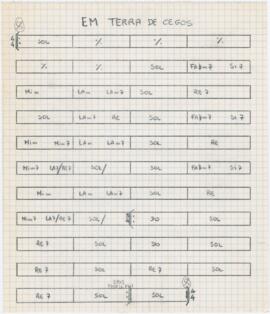 EM TERRA DE CEGOS
4/4 SOL % % %
% % SOL FA#m7 Si7
Mim LAm LAm7 SOL RE7
SOL LAm7 RE SOL FA#m7 Si7
Mim Mim7 LA7/RE7 SOL/ FA#m7 Si7
Mim LAm LAm7 SOL RE
Mim7 LA7/RE7 SOL/ DO SOL
RE7 SOL DO SOL
RE7 SOL RE7 SOL
RE7 SOL SOL 4/4